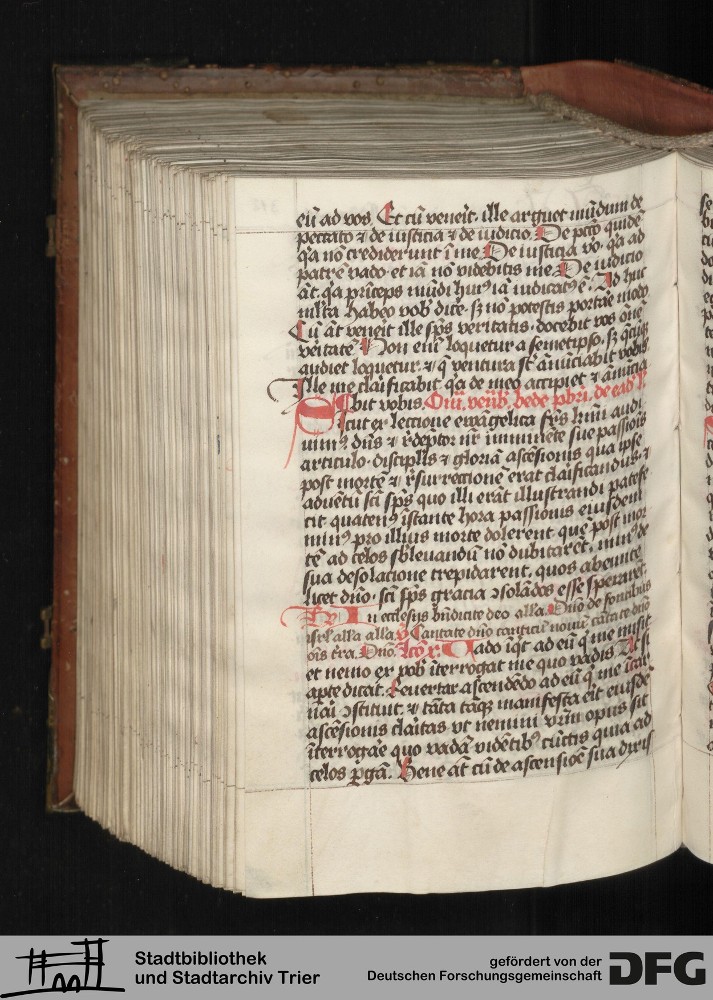 eū ad vos. Et cū veneit. ille arguet mūdum de
peccato ⁊ de iusticia ⁊ de iudicio. De pctō quidē
qa nō crediderunt ī me. De iusticia vo. qa ad
patrē vado. et iā nō videbitis me. De iudicio
āt. qa prīceps mūdi huiꝰ iā iudicatꝰ ē. Ad huc
mlta habeo vob dicē. sꝫ nō potestis portae modo
Cū āt veneit ille spūs veritatis. docebit vos ōnē
veritatē. Non eni loquetur a semetipso. sꝫ qcūqꝫ
audiet loquetur. ⁊ q ventura st ānūciabit vobis
Ille me claificabit qa de meo accipiet ⁊ ānūcia
bit vobis. Om. venb. bede pbri. de eadē l.
Sicut ex leccione ewāgelica frēs krmi audi
uimꝰ dns ⁊ rēdeptor nr īminēte sue passiois
articulo. discipłis ⁊ gloriā ascēsionis qua ipse
post mortē ⁊ rsurrectionē erat claificandus. ⁊
aduētū sci spūs quo illi erāt illustrandi patefe
cit. quatenꝰ īstante hora passionis eiusdem
minꝰ pro illius morte dolerent. quē post mor
tē ad celos sbleuandū nō dubitarēt. minꝰ de
sua desolacione trepidarent. quos abeunte
licet dno. sci spūs gracia ꝯsolādos esse sperarēt.
In ecclesijs bndicite deo alla. Dno de fontibus
isrl alla alla. V Cantate dno canticū nouū cātate dno
ois tra. Dno. Lco x. Vado īqt ad eū q me misit
et nemo ex vob īterrogat me quo vadis. Ac si
apte dicat. Reuertar ascendēdo ad eū q me
ꝯstituit. ⁊ tāta tāqꝫ manifesta eit eiusdē
ascēsionis claitas vt nemini vrm opus sit
īterrogae quo vadā vidētibꝰ cūctis quia ad
celos pgā. Bene āt cū de ascensiōe sua dixis
Stadtbibliothek
und Stadtarchiv Trier
gefördert von der
Deutschen Forschungsgemeinschaft
DFG